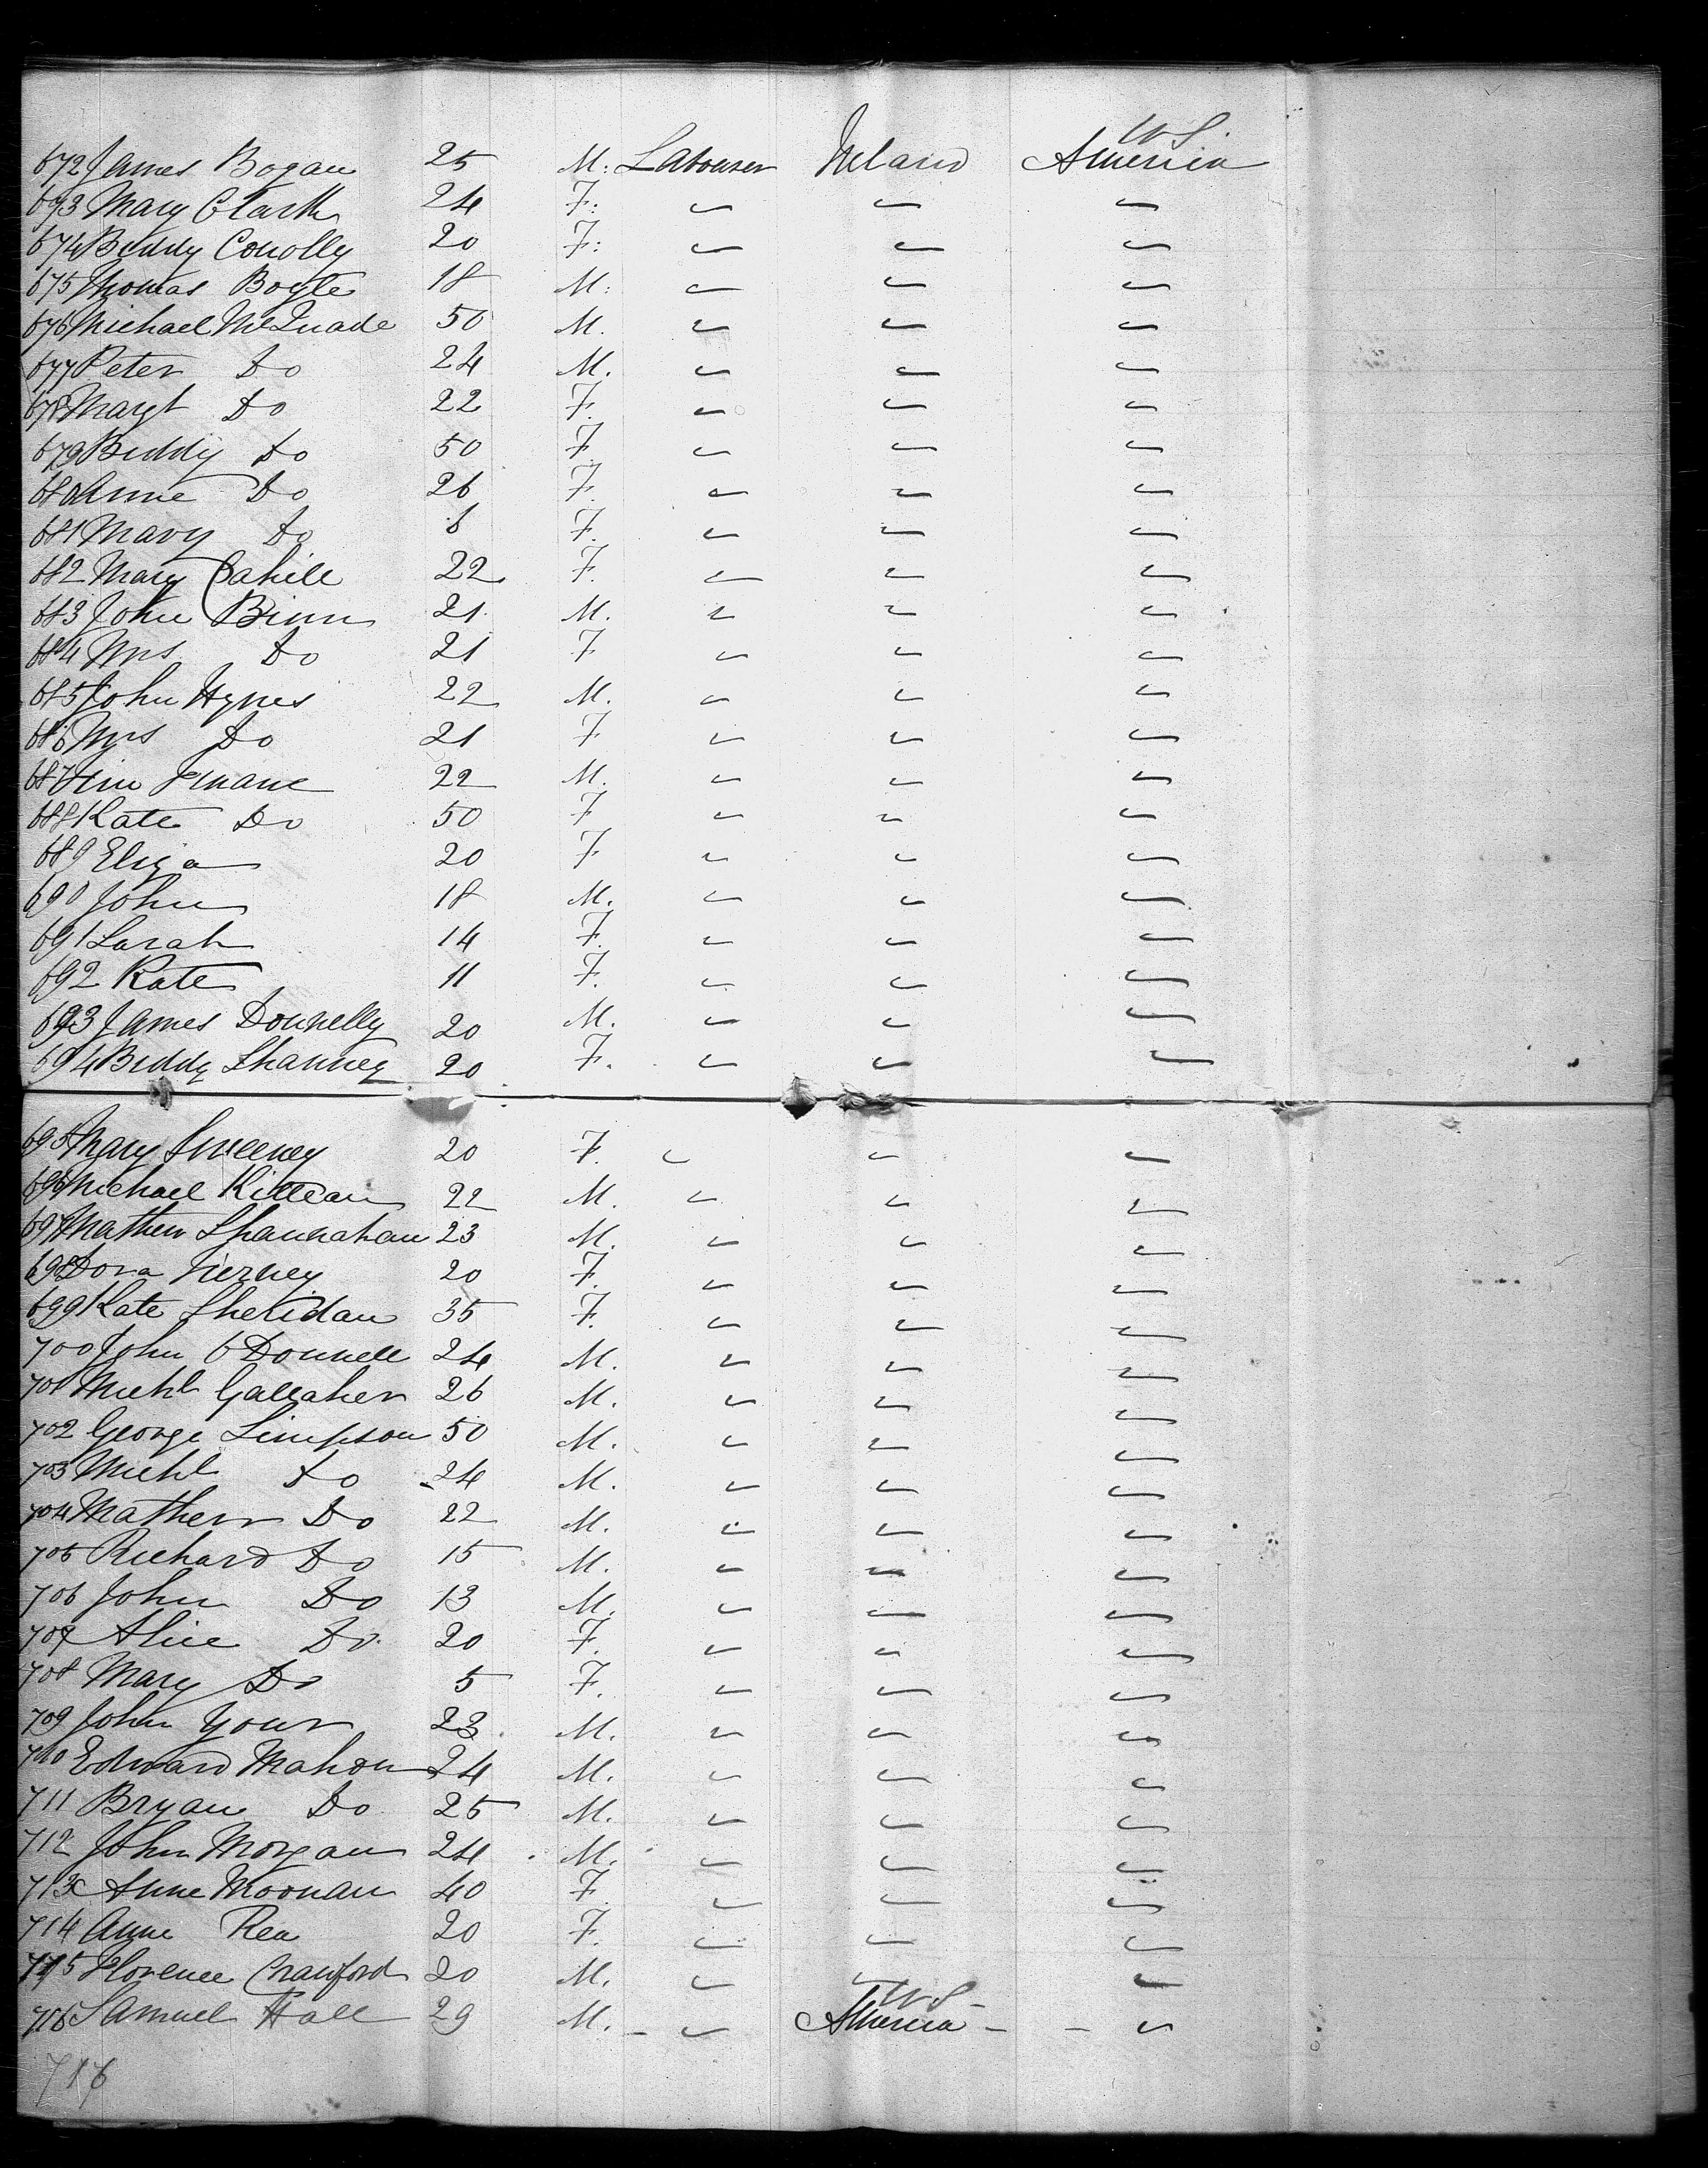 U S.
672 James Bogan 25 M: Labourer Ireland America
673 Mary Clark 24 F: " " "
674 Biddy Conolly 20 F: " " "
675 Thomas Boyle 18 M: " " "
676 Michael McQuade 50 M. " " "
677 Peter Do 24 M. " " "
678 Margt Do 22 F. " " "
679 Biddy Do 50 F. " " "
680 Anne Do 26 F. " " "
681 Mary Do 6 F. " " "
682 Mary Cahill 22 F. " " "
683 John Binn 21 M. " " "
684 Mrs Do 21 F " " "
685 John Hynes 22 M. " " "
686 Mrs Do 21 F " " "
687 22 M. " " "
688 Kate Do 50 F " " "
689 Eliza 20 F " " "
690 John 18 M. " " "
691 Sarah 14 F. " " "
692 Kate 11 F. " " "
693 James Donnelly 20 M. " " "
694 Biddy Shanney 20 F. " " "
695 Mary Sweeney 20 F. " " "
696 Michael Killean 22 M. " " "
697 Mathew Shannahan 23 M. " " "
698 Dora Tierney 20 F. " " "
699 Kate Sheridan 35 F. " " "
700 John O Donnell 24 M. " " "
701 Michl Gallaher 26 M. " " "
702 George Simpson 50 M. " " "
703 Michl Do 24 M. " " "
704 Mathew Do 22 M. " " "
705 Richard Do 15 M. " " "
706 John Do 13 M. " " "
707 Alice Do 20 F. " " "
708 Mary Do 5 F. " " "
709 John Your 23 M. " " "
710 Edward Mahon 24 M. " " "
711 Bryan Do 25 M. " " "
712 John Morgan 24 M. " " "
713 Anne Moonan 40 F. " " "
714 Anne Rea 20 F. " " "
715 Florence Crawford 20 M. " " "
U S
716 Samuel Hall 29 M. " America "
716